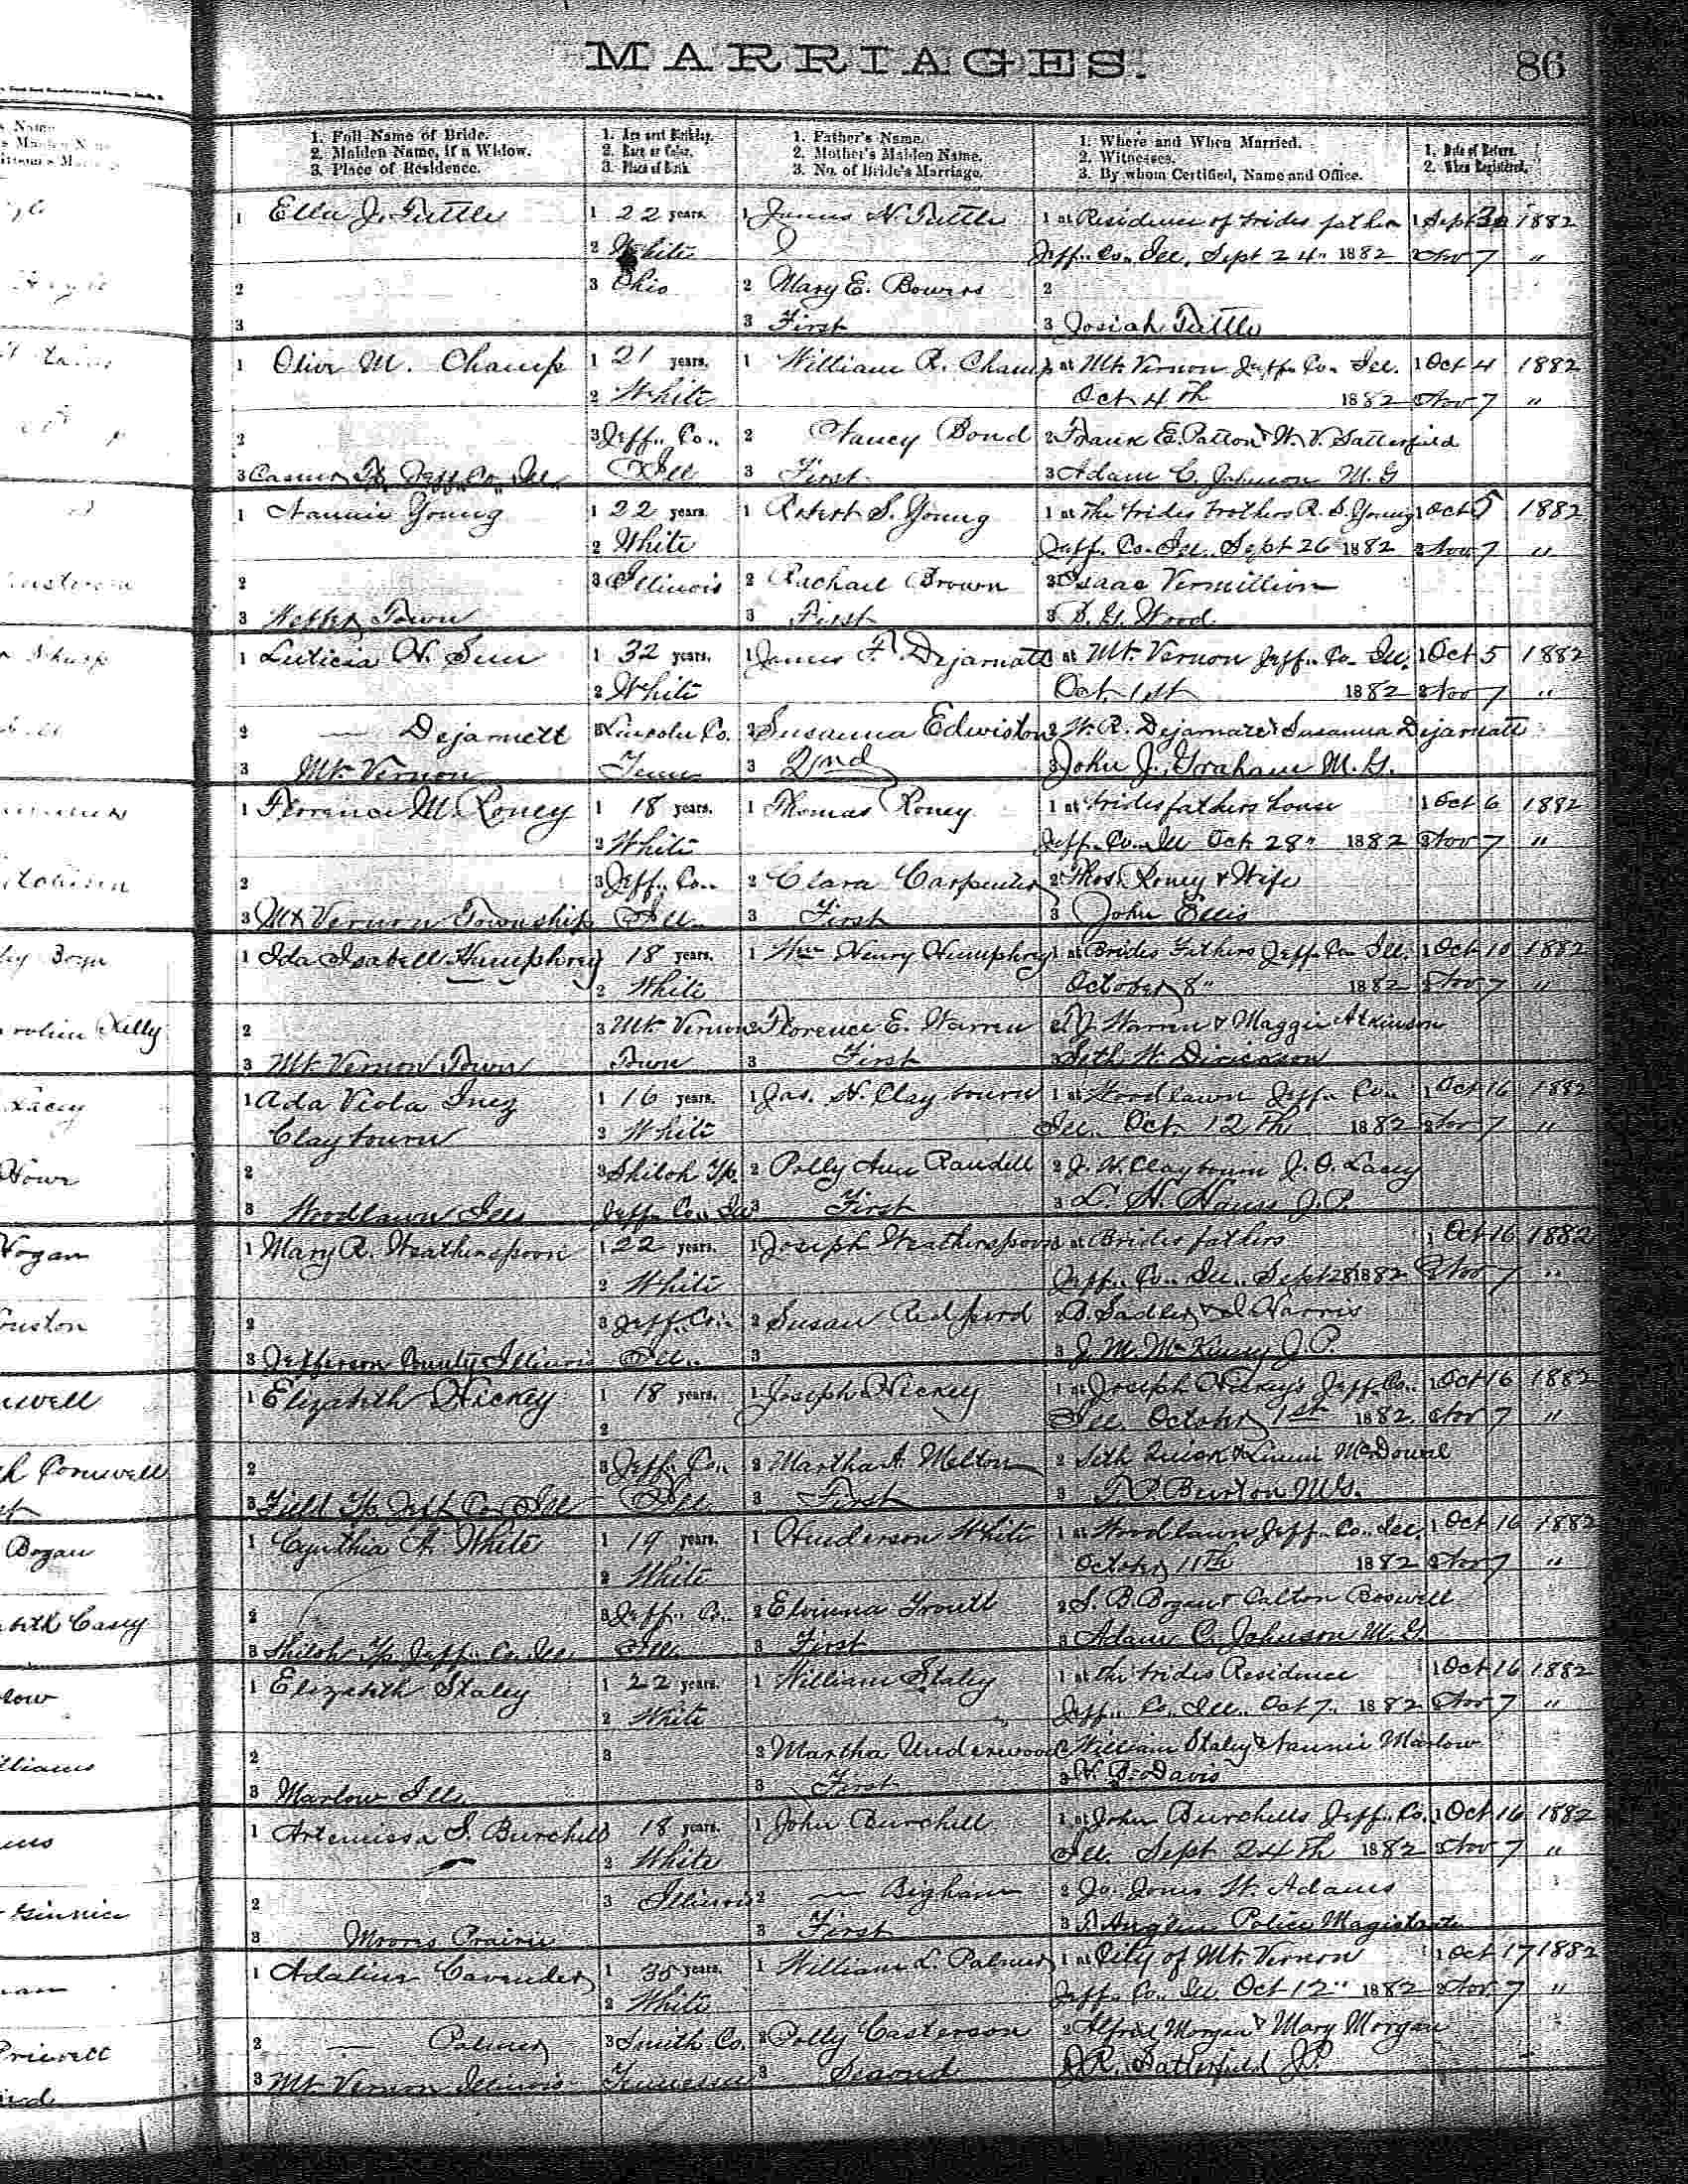 MARRIAGES.
86
1. Full Name of Bride.
2. Maiden Name, if a Widow.
3. Place of Residence.
1. Age and Birthday.
2. Race or Color.
3. Place of Birth.
1. Father's Name.
2. Mother's Maiden Name.
3. No. of Bride's Marriage.
1. Where and When Married.
2. Witnesses.
3. By whom Certified, Name and Office.
1. Date of Return.
2. When Registered.
1 Ella J. Tuttle 1 22 years. 1 James H. Tuttle 1 at Residence of brides father 1 Sept 30 1882
2 White Jeff. Co. Ill. Sept 24" 1882 2 Nov 7 "
2 3 Ohio 2 Mary E. Bowers 2
3 3 First 3 Josiah Tuttle
1 Olive M. Champ 1 21 years. 1 William R. Champ 1 at Mt. Vernon Jeff. Co. Ill. 1 Oct 4 1882
2 White Oct 4 th 1882 2 Nov 7 "
2 3 Jeff. Co. 2 Nancy Bond 2 Frank E. Patton & W. V. Satterfield
3 Casner Tp. Jeff. Co. Ill. Ill 3 First 3 Adam C. Johnson M. G
1 Nannie Young 1 22 years. 1 Robert S. Young 1 at the brides brothers R. S. Young 1 Oct 5 1882
2 White Jeff. Co. Ill. Sept 26 1882 2 Nov 7 "
2 3 Illinois 2 Rachael Brown 2 Isaac Vermillion
3 Town 3 First 3 Wood
1 Luticia H. 1 32 years. 1 James F. Dejarnatt 1 at Mt. Vernon Jeff. Co. Ill. 1 Oct 5 1882
2 White Oct. 1st 1882 2 Nov 7 "
2 — Dejarnett 3 Lincoln Co. 2 Susanna Edwiston 2 W. R. Dejarnatt & Susanna Dejarnatt
3 Mt. Vernon Tenn 3 2nd 3 John J. Graham M. G.
1 Florence M. Roney 1 18 years. 1 Thomas Roney 1 at brides fathers house 1 Oct 6 1882
2 White Jeff. Co. Ill Oct 28" 1882 2 Nov 7 "
2 3 Jeff. Co. 2 Clara Carpenter 2 Thos. Roney & Wife
3 Mt Vernon Township Ill. 3 First 3 John Ellis
1 Ida Isabell Humphrey 1 18 years. 1 Wm Henry Humphrey 1 at Brides Fathers Jeff. Co. Ill. 1 Oct 10 1882
2 White October 8" 1882 2 Nov 7 "
2 3 Mt. Vernon 2 Florence E. Warren 2 J. Warren & Maggie Atkinson
3 Mt. Vernon Town Town 3 First 3 Seth W. Dickson
1 Ada Viola Inez 1 16 years. 1 Jas. H. Claybourn 1 at Woodlawn Jeff. Co. 1 Oct 16 1882
Claybourn 2 White Ill. Oct. 12 th 1882 2 Nov 7 "
2 3 Shiloh Tp. 2 Polly Ann Randell 2 J. H. Claybourn J. O. Lacey
3 Woodlawn Ills Jeff. Co. Ill 3 First 3 L. H. J. P.
1 Mary R. Weatherspoon 1 22 years. 1 Joseph Weatherspoon 1 at Brides fathers 1 Oct 16 1882
2 White Jeff. Co. Ill. Sept 28 1882 2 Nov 7 "
2 3 Jeff. Co. 2 Susan Redfurd 2 Sadler & Harris
3 Jefferson County Illinois Ill. 3 3 J. M. McKinney J. P.
1 Elizabeth Hickey 1 18 years. 1 Joseph Hickey 1 at Joseph Hickey's Jeff. Co. 1 Oct 16 1882
2 Ill. October 1st 1882 2 Nov 7 "
2 3 Jeff. Co. 2 Martha A. Melton 2 Seth Quick & McDowel
3 Field Tp. Jeff. Co. Ill Ill. 3 First 3 Burton M. G.
1 Cynthia A. White 1 19 years. 1 Henderson White 1 at Woodlawn Jeff. Co. Ill. 1 Oct 16 1882
2 White October 11th 1882 2 Nov 7 "
2 3 Jeff. Co. 2 Trouitt 2 S. B. Bogan & Calton Boswell
3 Shiloh Tp. Jeff. Co. Ill Ill. 3 First 3 Adam C. Johnson M. G.
1 Elizabeth Staley 1 22 years. 1 William Staley 1 at the brides Residence 1 Oct 16 1882
2 White Jeff. Co. Ill. Oct 7. 1882 2 Nov 7 "
2 3 2 Martha Underwood 2 William Staley & Nannie Marlow
3 Marlow Ill. 3 First 3 Davis
1 Artemissa J. Burchell 18 years. 1 John Burchell 1 at John Burchells Jeff. Co. 1 Oct 16 1882
2 White Ill. Sept 24 th 1882 2 Nov 7 "
2 3 Illinois 2 — Bigham 2 Jo. Jones W. Adams
3 Moores Prairie 3 First 3 Police Magistrate
1 Adaline Cavender 1 35 years. 1 William L. Palmer 1 at City of Mt. Vernon 1 Oct 17 1882
2 White Jeff. Co. Ill Oct 12" 1882 2 Nov 7 "
2 — Palmer 3 Smith Co. 2 Polly Casterson 2 Alfred Morgan & Mary Morgan
3 Mt. Vernon Illinois Tennessee 3 Second 3 R. Satterfield J.P.